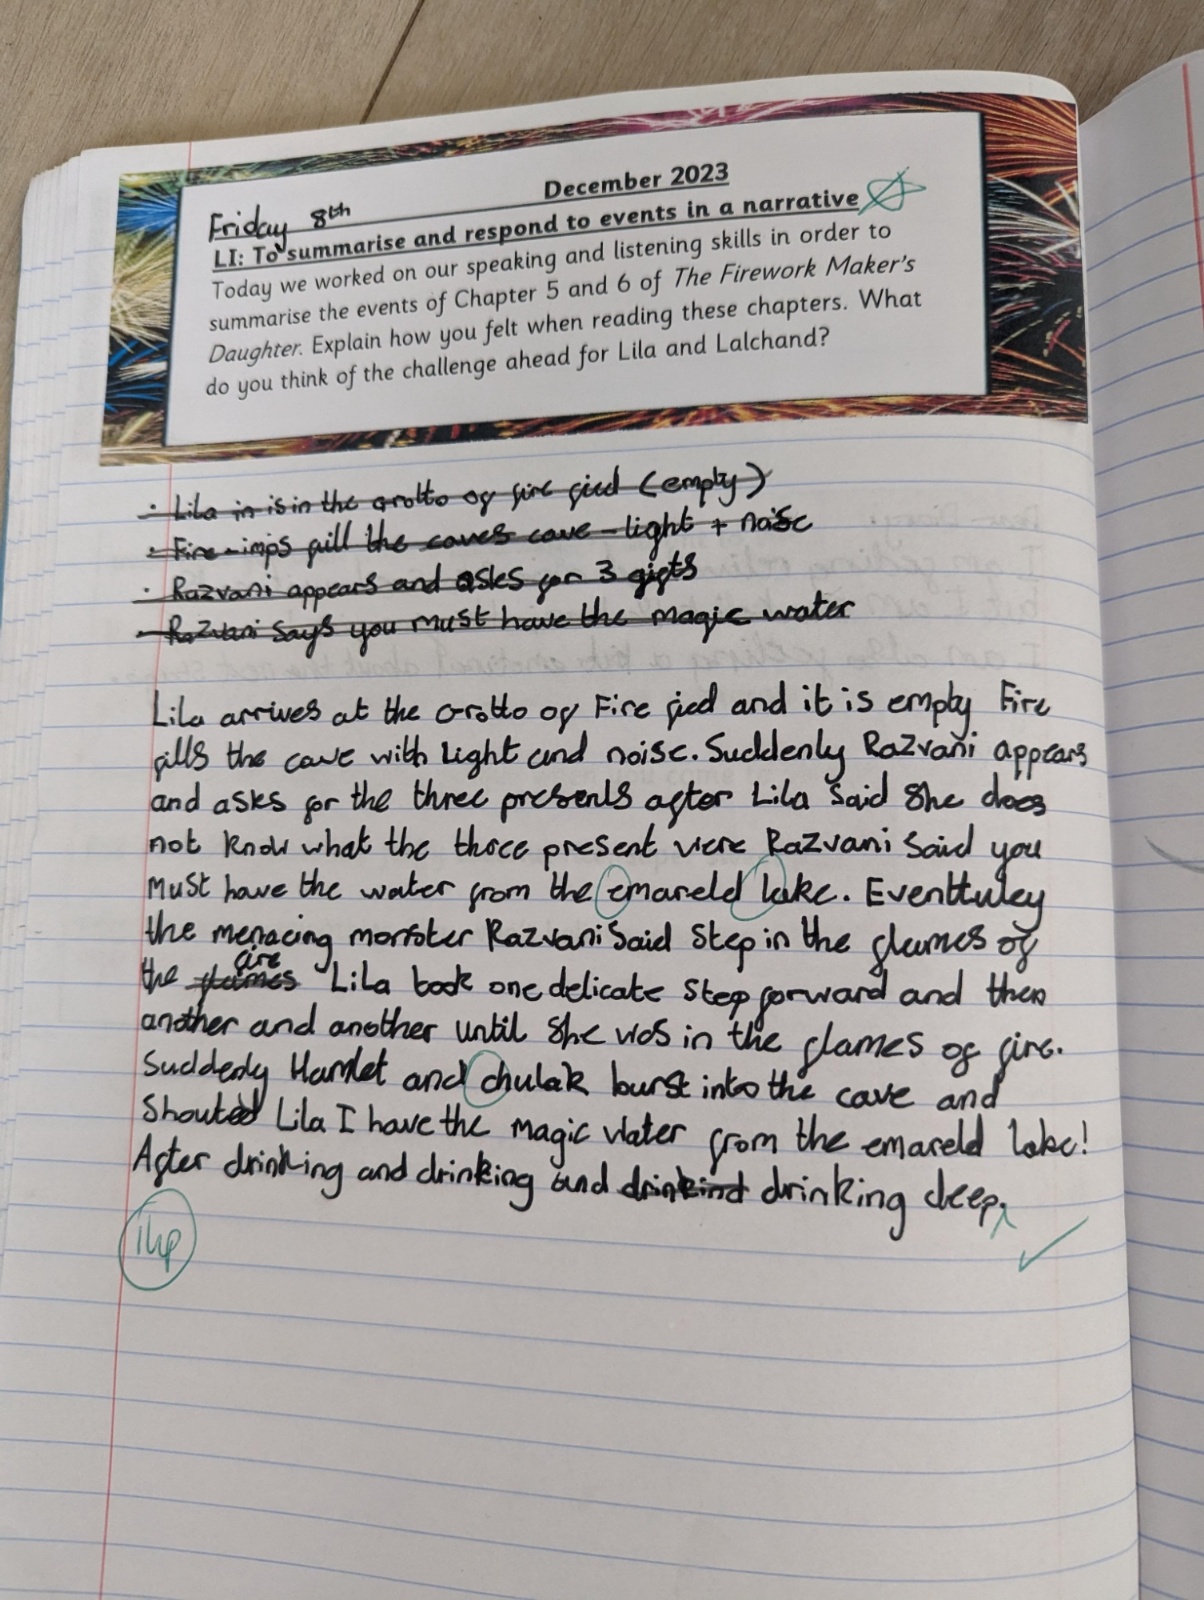 December 2023
Friday 8th
LI: To summarise and respond to events in a narrative
Today we worked on our speaking and listening skills in order to
summarise the events of Chapter 5 and 6 of The Firework Maker's
Daughter. Explain how you felt when reading these chapters. What
do you think of the challenge ahead for Lila and Lalchand?
· Lila in is in the Grotto of fire fied (empty)
· Fire-imps fill the caves cave - light + noise
· Razvani appears and asks for 3 gifts
· Razvani says you must have the magic water
Lila arrives at the Grotto of Fire fied and it is empty Fire
fills the cave with light and noise. Suddenly Razvani appears
and asks for the three presents after Lila said she does
not know what the three present were Razvani said you
must have the water from the emareld lake. Eventtuley
the menacing monster Razvani said step in the flames of
the flames fire Lila took one delicate step forward and then
another and another until she was in the flames of fire.
Suddenly Hamlet and chulak burst into the cave and
shouted Lila I have the magic water from the emareld lake!
After drinking and drinking and drinkind drinking deep.